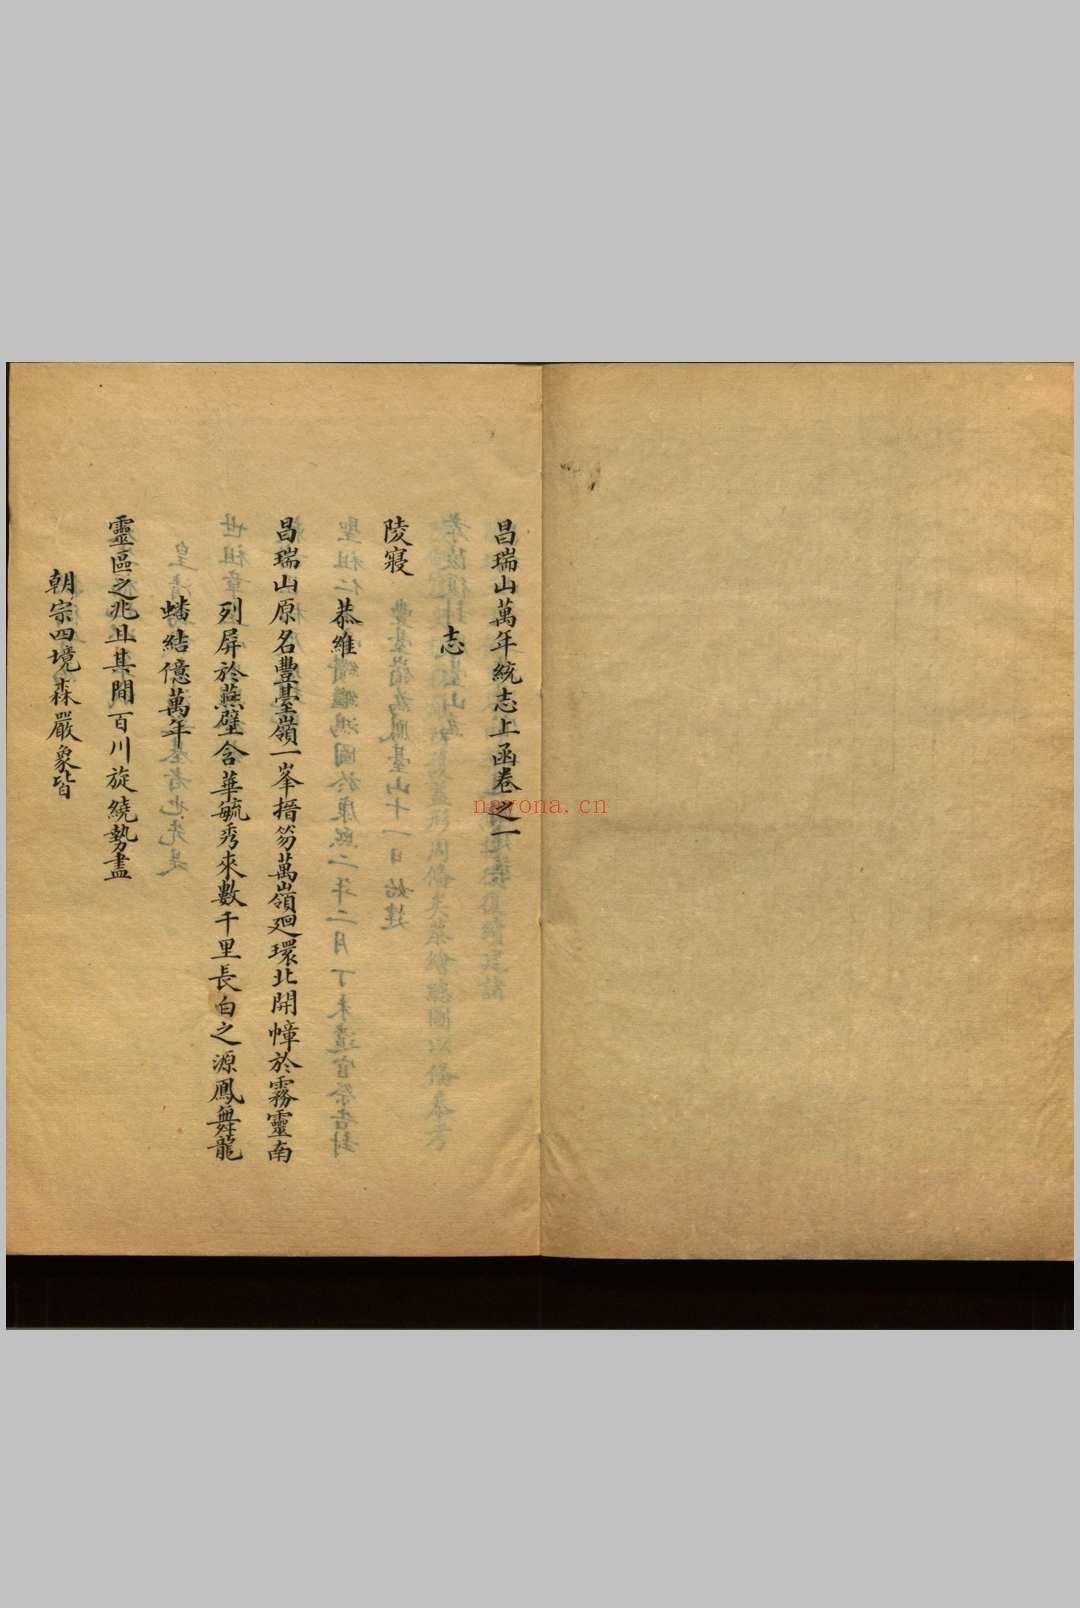 昌瑞山萬年統志上函卷之一
志
陵寢
恭維
昌瑞山原名豐臺嶺一峯搢笏萬嶺廻環北開幛於霧靈南
列屏於燕壁含華毓秀來數千里長白之源鳳舞龍
蟠結億萬年
靈區之兆且其間百川旋繞勢盡
朝宗四境森嚴象皆
nayona.cn